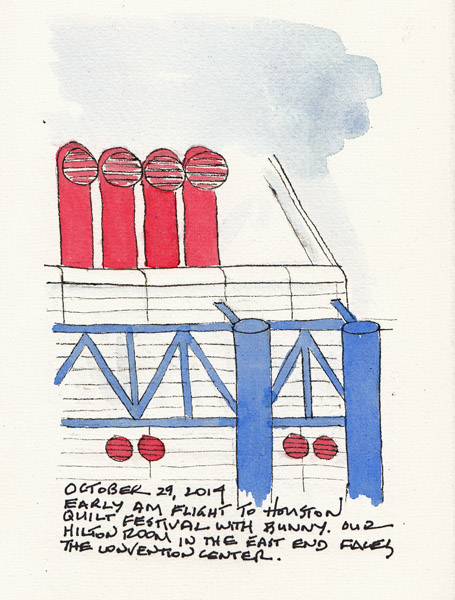 OCTOBER 29, 2014
EARLY AM FLIGHT TO HOUSTON
QUILT FESTIVAL WITH BUNNY. OUR
HILTON ROOM IN THE EAST END FACES
THE CONVENTION CENTER.